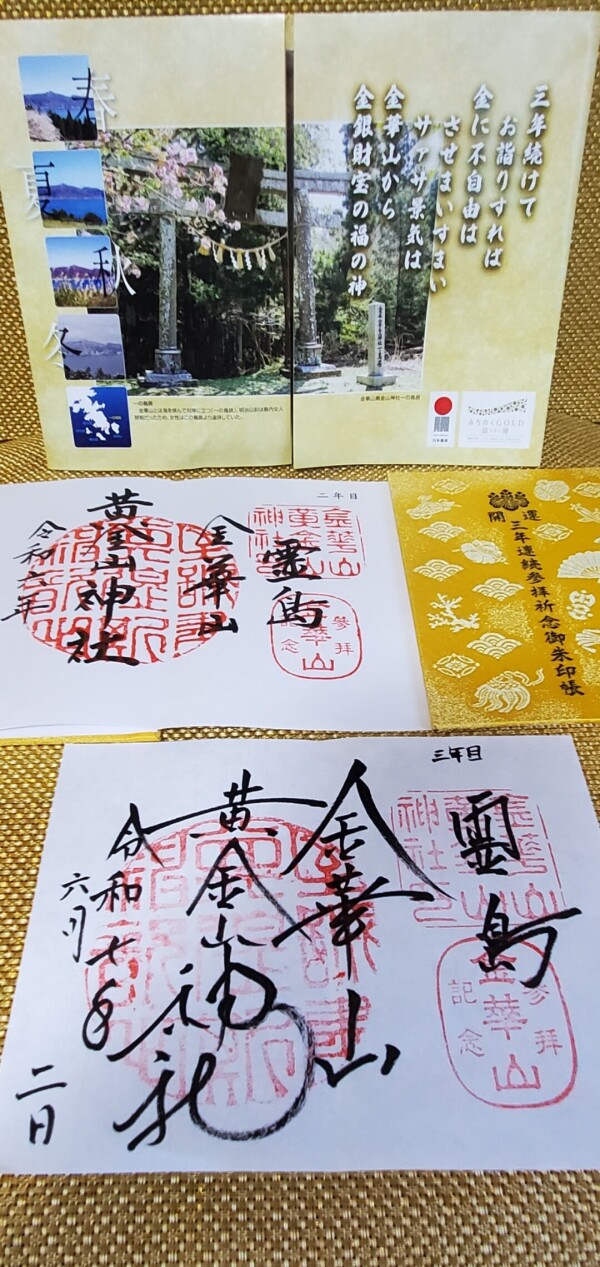 三年続けて
お詣りすれば
金に不自由は
させまいすまい
サァサ景気は
金華山から
金銀財宝の福の神
春
夏
秋
冬
一の鳥居
金華山黄金山神社一の鳥居
みちのくGOLD
二年目
霊島
金華山
黄金山神社
令和六年
金華山
黄金山
神社
参拝
記念
金華山
開運
三年連続参拝祈念御朱印帳
三年目
霊島
金華山
黄金山神社
令和七年
六月
二日
参拝
記念
金華山